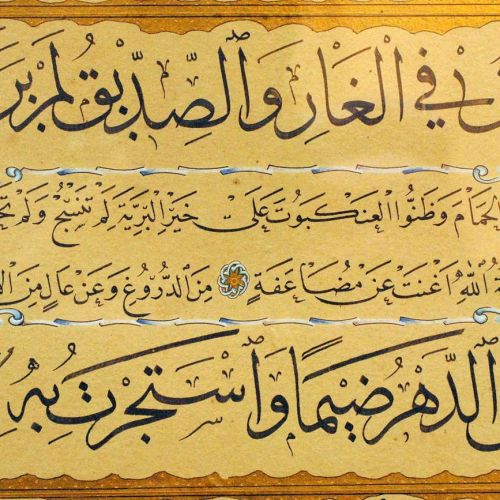 في الغَارِ وَالصِّدِّيقُ لَمْ
الحَمَامَ وَظَنُّوا العَنْكَبُوتَ عَلَى خَيْرِ البَرِيَّةِ لَمْ تَنْسُجْ وَلَمْ
اللهِ اَغْنَتْ عَنْ مُضَاعَفَةٍ مِنَ الدُّرُوعِ وَعَنْ عَالٍ مِنَ
الدَّهْرُ ضَيْمًا وَاسْتَجَرْتُ بِهِ